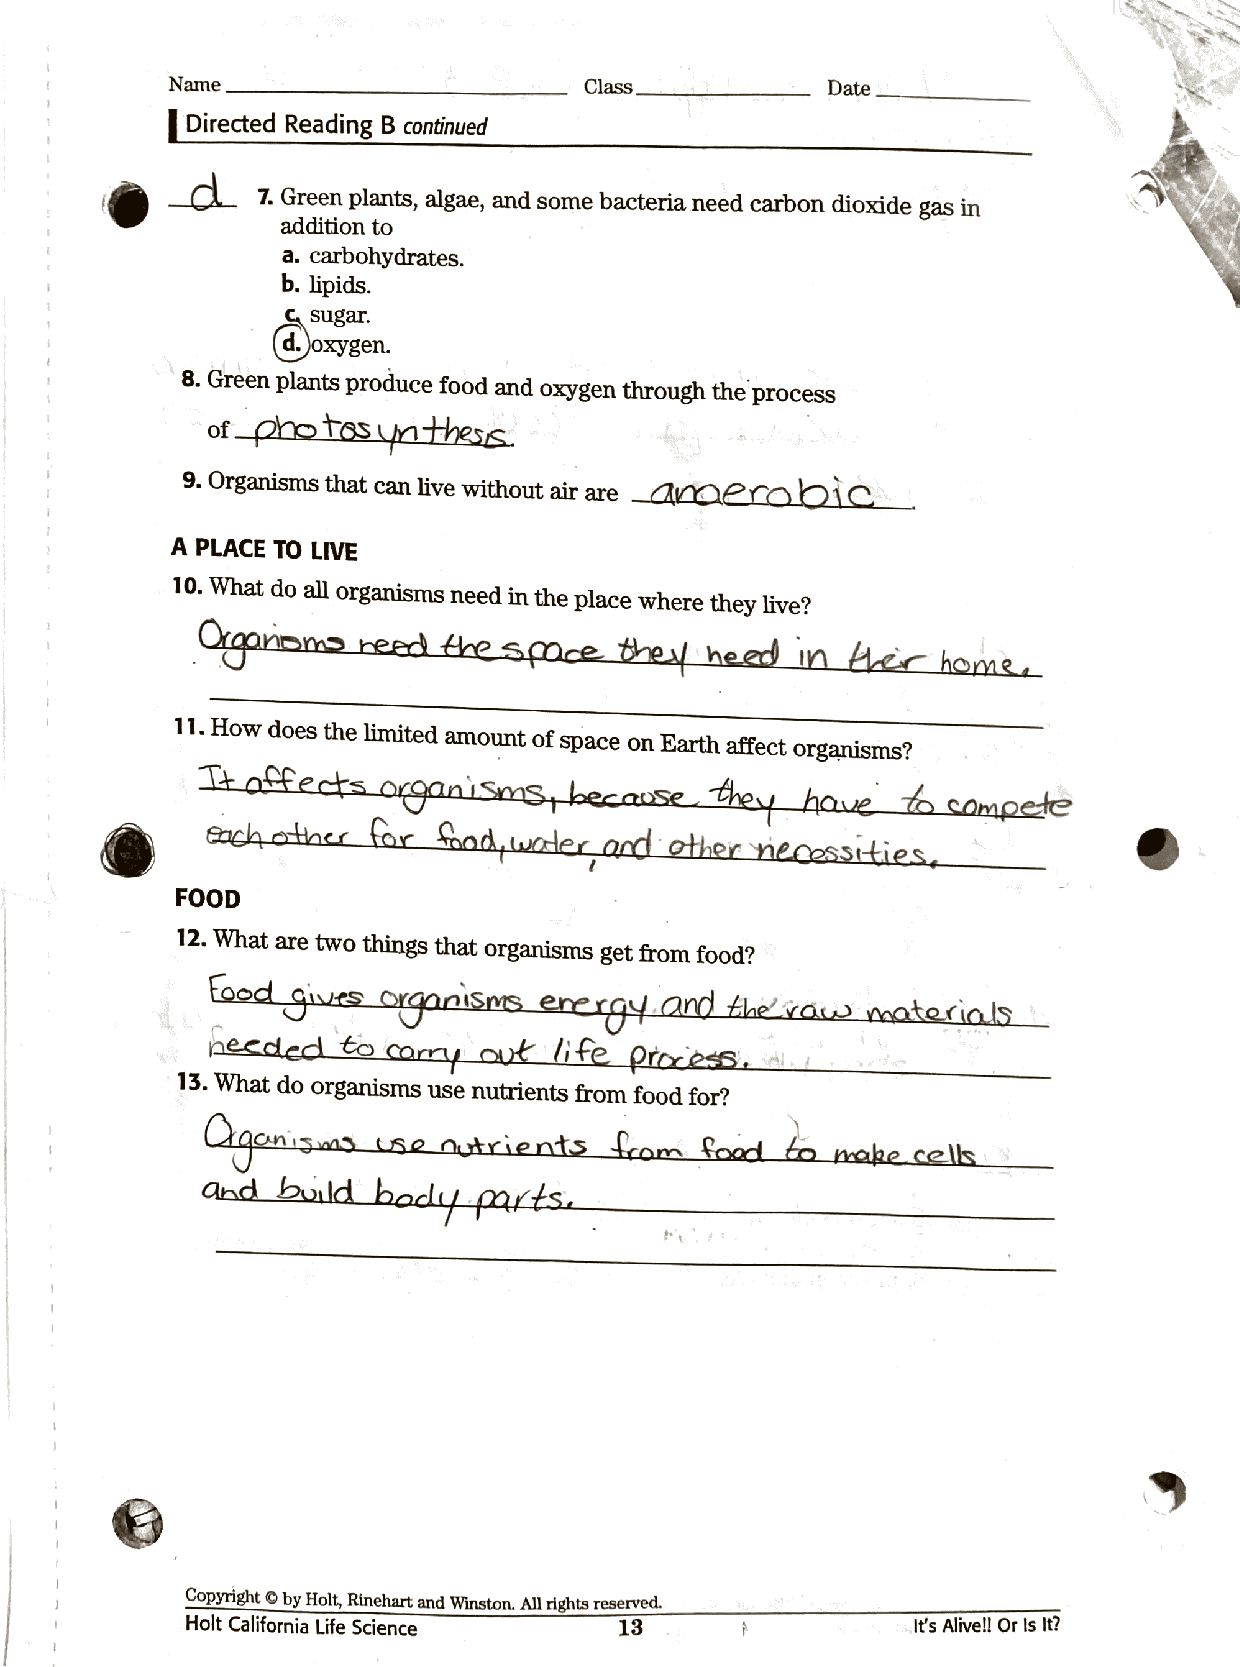 Name Class Date
Directed Reading B continued
d 7. Green plants, algae, and some bacteria need carbon dioxide gas in
addition to
a. carbohydrates.
b. lipids.
c. sugar.
d. oxygen.
8. Green plants produce food and oxygen through the process
of photosynthesis.
9. Organisms that can live without air are anaerobic.
A PLACE TO LIVE
10. What do all organisms need in the place where they live?
Organisms need the space they need in their home.
11. How does the limited amount of space on Earth affect organisms?
It affects organisms, because they have to compete
each other for food, water, and other necessities.
FOOD
12. What are two things that organisms get from food?
Food gives organisms energy and the raw materials
needed to carry out life process.
13. What do organisms use nutrients from food for?
Organisms use nutrients from food to make cells
and build body parts.
Copyright © by Holt, Rinehart and Winston. All rights reserved.
Holt California Life Science 13 It's Alive!! Or Is It?